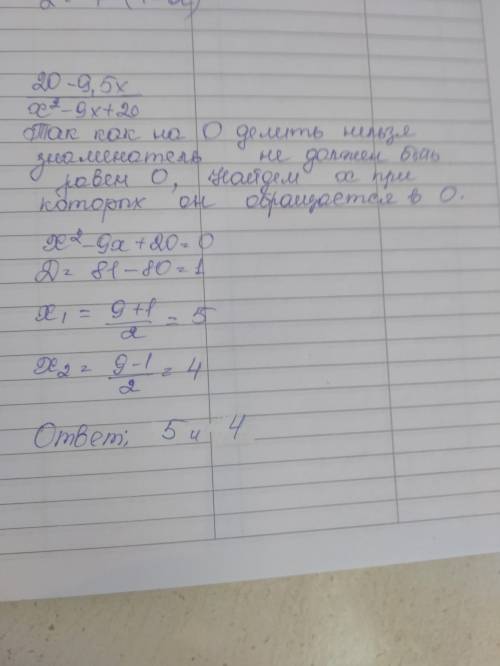 20-9,5x
x²-9x+20
Так как на 0 делить нельзя
знаменатель не должен быть
равен 0, Найдем x при
которых он обращается в 0.
x²-9x+20=0
D= 81-80=1
x₁ = 9+1/2 = 5
x₂ = 9-1/2 = 4
Ответ: 5 и 4